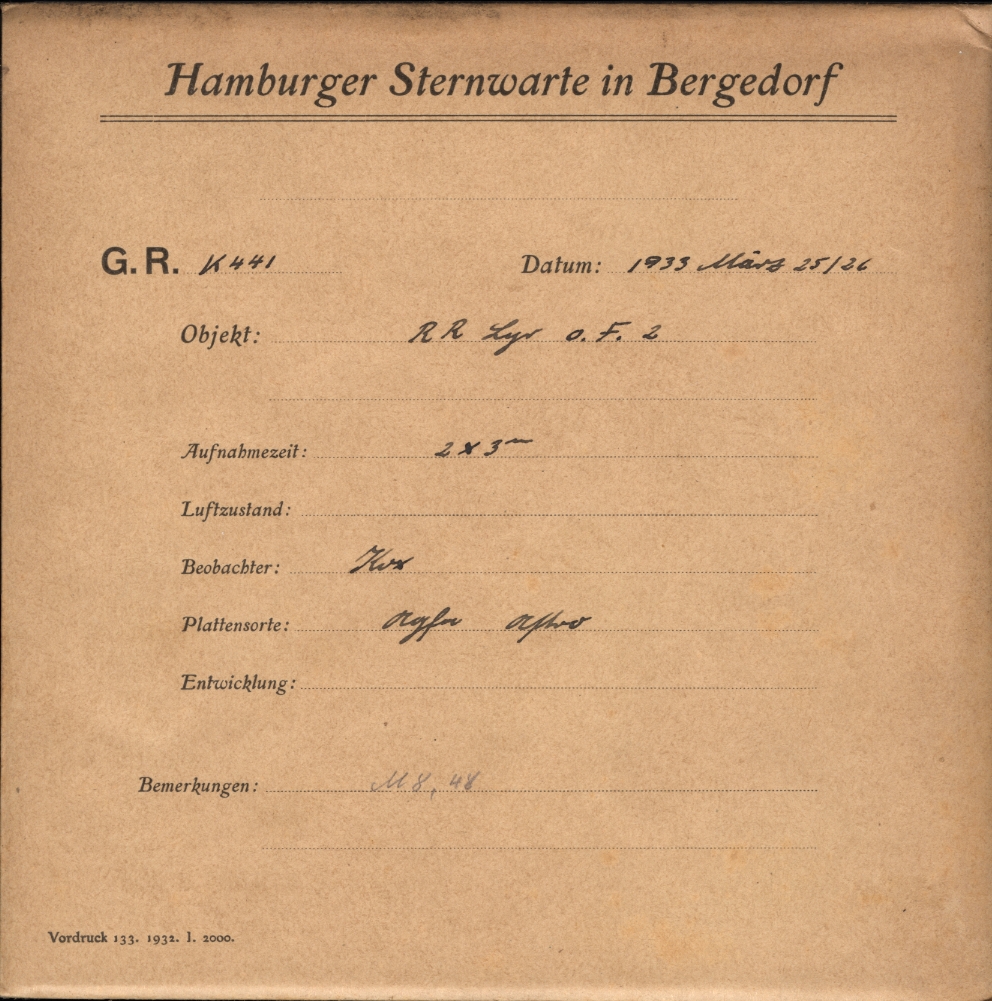 Hamburger Sternwarte in Bergedorf
G. R. K 441 Datum: 1933 März 25/26
Objekt: RR Lyr o. F. 2
Aufnahmezeit: 2 x 3ᵐ
Luftzustand:
Beobachter: Kox
Plattensorte: Agfa Astro
Entwicklung:
Bemerkungen: M 8, 48
Vordruck 133. 1932. I. 2000.